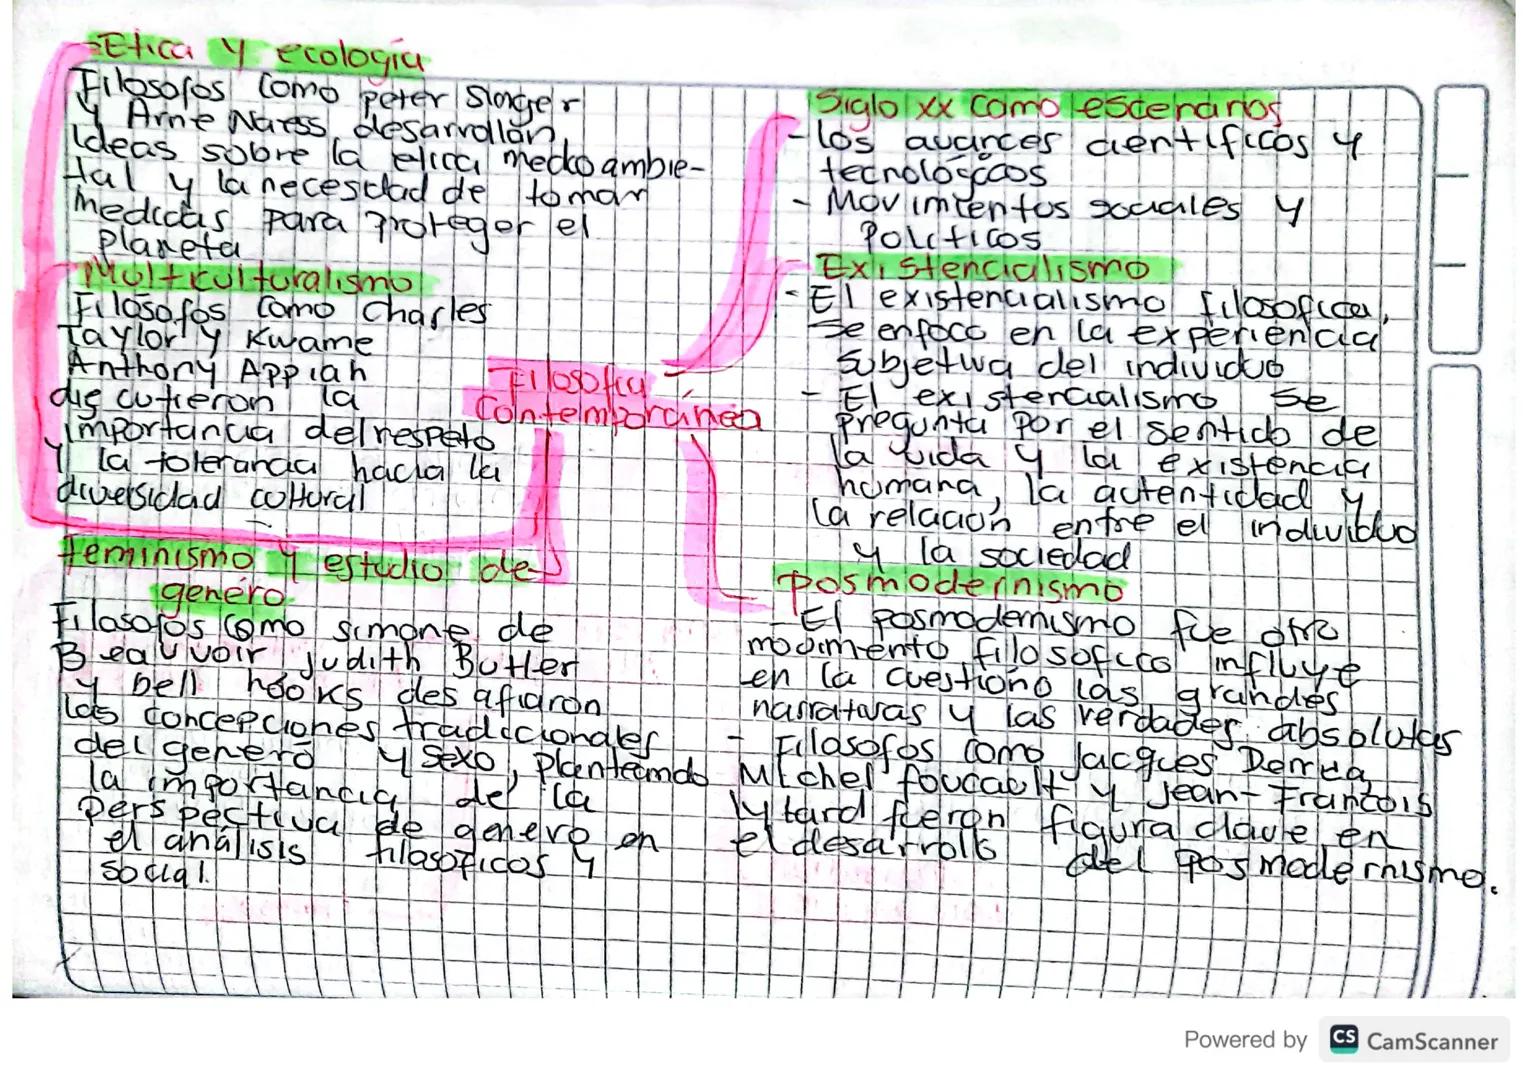 Etica y ecología
Filosofos como peter Singer
y Arne Naess, desarrollan
Ideas sobre la etica medio ambie-
tal y la necesidad de tomar
medidas para proteger el
planeta
Multiculturalismo
Filosofos como Charles
Taylor y Kwame
Anthony Appiah
discutieron la
importancia del respeto
y la tolerancia hacia la
diversidad cultural
feminismo y estudio de
genéro
Filosofos como simone de
Beauvoir judith Butler
y bell hooks desafiaron
las concepciones tradicionales
del genero y sexo, planteando
la importancia de la
perspectiva de genero en
el análisis filosoficos y
social.
Filosofia
Contemporánea
Siglo xx como escenarios
- los avances cientificos y
tecnológicos
- Movimientos sociales y
Politicos
Existencialismo
- El existencialismo filosofica,
se enfoco en la experiencia
subjetiva del individuo
- El existencialismo se
pregunta por el sentido de
la vida y la existencia
humana, la autentidad y
la relacion entre el individuo
y la sociedad
posmodernismo
- El posmodernismo fue otro
movimento filosofico influye
en la cuestiono las grandes
narrativas y las verdades absolutas
- Filosofos como Jacques Derrida,
Michel foucault y Jean-Francois
lytard fueron figura clave en
el desarrollo del posmodernismo.
Powered by CS CamScanner